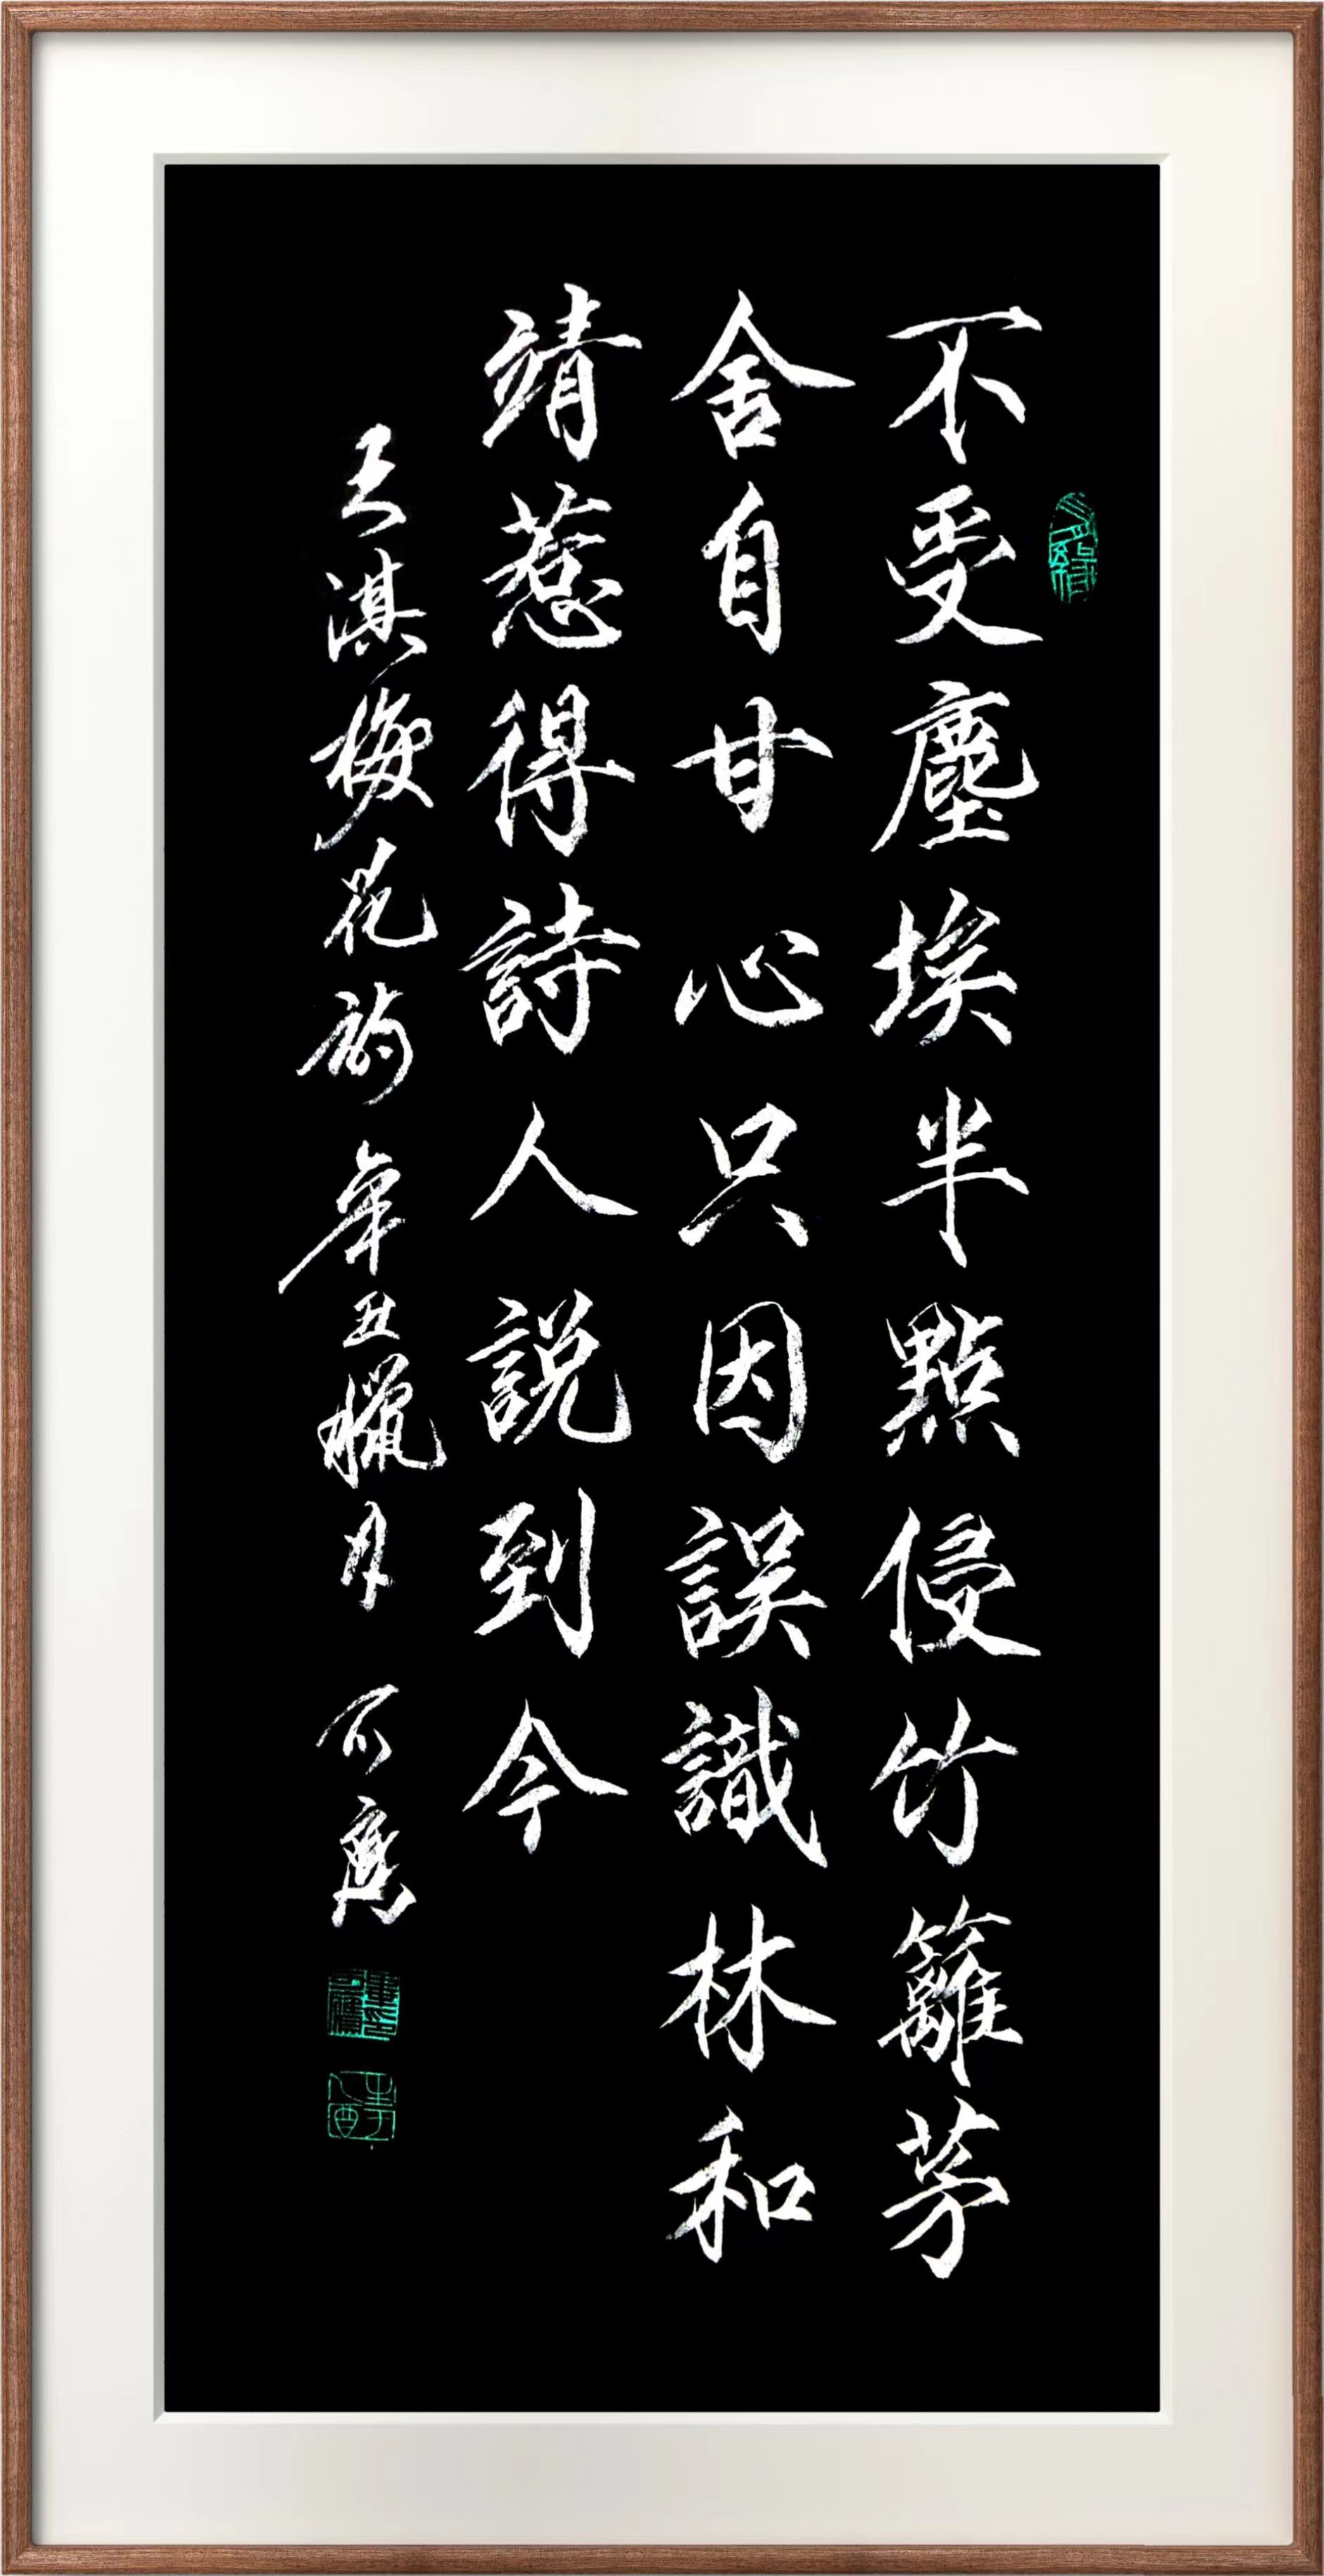 不受塵埃半點侵竹籬茅
舍自甘心只因誤識林和
靖惹得詩人說到今
王淇梅花詩辛丑臘月